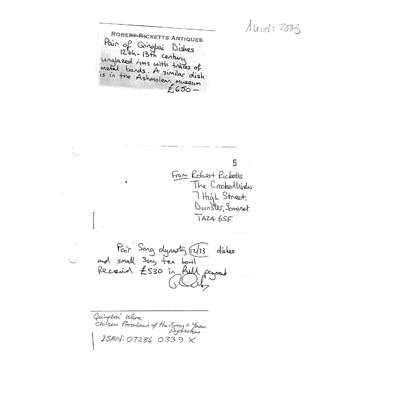 March 2003
ROBERT RICKETTS ANTIQUES
Pair of Qingbai Dishes
12th-13th century
unglazed rims with traces of
metal bands. A similar dish
is in the Ashmolean museum
£650-
5
From Robert Ricketts
The Crooked Window
7 High Street,
Dunster, Somerset
TA24 6SF
Pair Song dynasty 12/13 dishes
and small Song tea bowl
Received £530 in full payment
Qingbai Ware:
Chinese Porcelain of the Song & Yuan
Dynasties
ISBN: 07286 0339 X